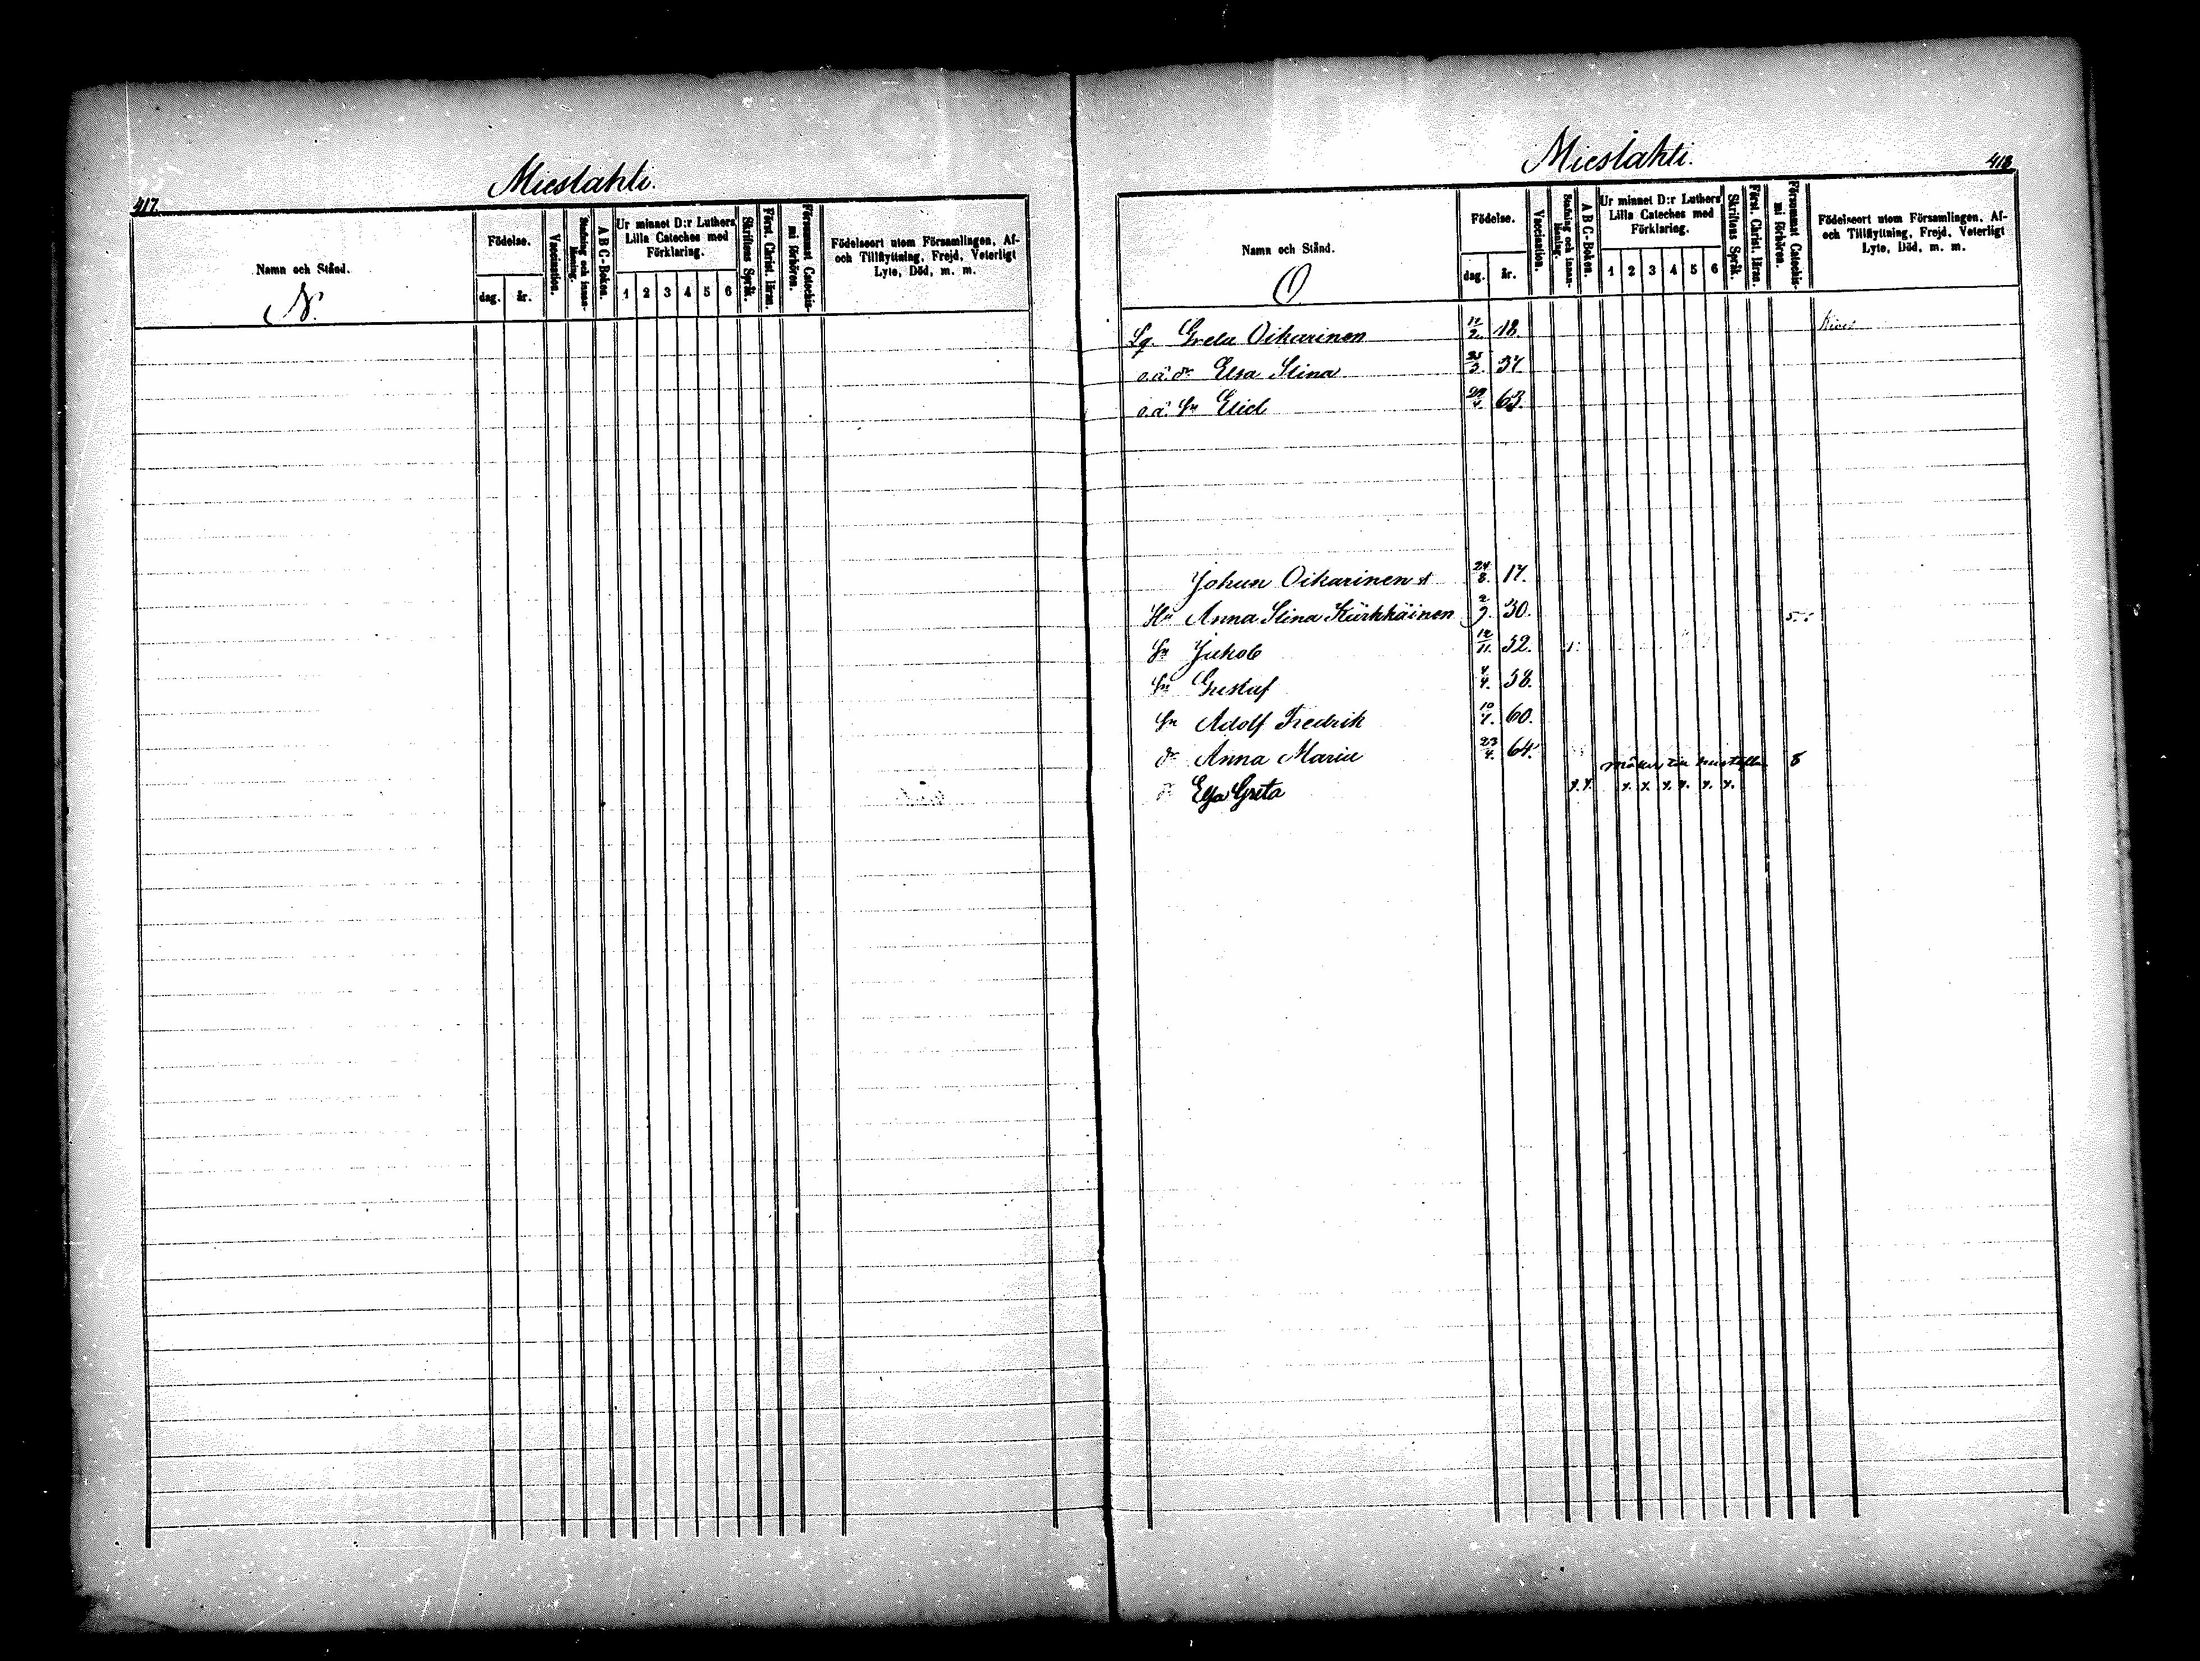 417.
Mieslahti.
Namn och Stånd.
N.
Födelse.
dag.
år.
Vaccination.
Stafning och innan-läsning.
A B C-Boken.
Ur minnet D:r Luthers
Lilla Cateches med
Förklaring.
1 2 3 4 5 6
Skriftens Språk.
Först. Christ. läran.
Försummat Catechis-
mi förhören.
Födelseort utom Församlingen, Af-
och Tillflyttning, Frejd, Veterligt
Lyte, Död, m. m.
Mieslahti.
418.
Namn och Stånd.
O
Födelse.
dag.
år.
Vaccination.
Stafning och innan-
läsning.
A B C-Boken.
Ur minnet D:r Luthers
Lilla Cateches med
Förklaring.
1 2 3 4 5 6
Skriftens Språk.
Först. Christ. läran.
Försummat Catechis-
mi förhören.
Födelseort utom Församlingen, Af-
och Tillflyttning, Frejd, Veterligt
Lyte, Död, m. m.
Greta Oikarinen 18.
o.ä. dr Elsa Stina
o.ä. Sn 63.
Johan Oikarinen 24/8. 17.
Hu Anna Stina Kärkkäinen 2/9. 30.
Sn Jakob 12/11. 52.
Sn Gustaf 4/4. 58.
Sn Adolf Fredrik 60.
dr Anna Maria 23/4. 64.
8
dr Elsa Greta